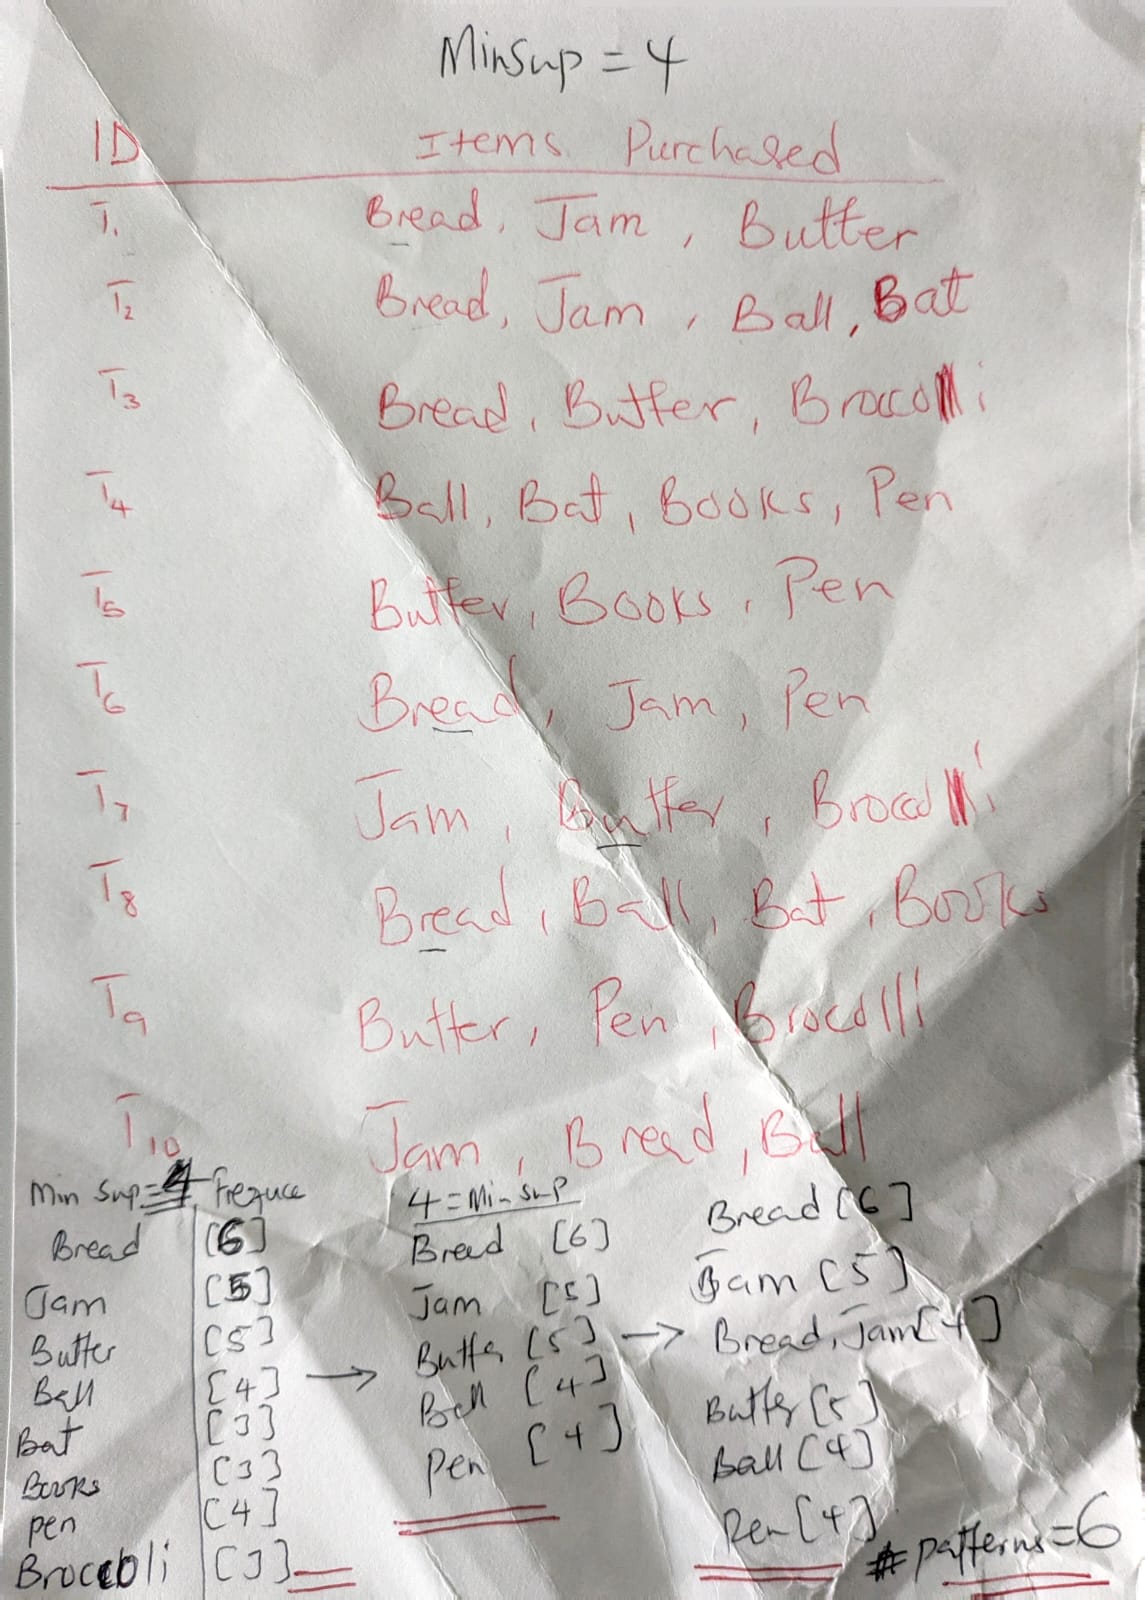 MinSup = 4
ID Items Purchased
T1 Bread, Jam, Butter
T2 Bread, Jam, Ball, Bat
T3 Bread, Butter, Broccolli
T4 Ball, Bat, Books, Pen
T5 Butter, Books, Pen
T6 Bread, Jam, Pen
T7 Jam, Butter, Broccolli
T8 Bread, Ball, Bat, Books
T9 Butter, Pen, Brocolli
T10 Jam, Bread, Ball
Min Sup=4 Frequce
Bread [6]
Jam [5]
Butter [5]
Ball [4]
Bat [3]
Books [3]
Pen [4]
Broccoli [3]
4=Min Sup
Bread [6]
Jam [5]
Butter [5]
Ball [4]
Pen [4]
Bread [6]
Jam [5]
Bread, Jam [4]
Butter [5]
Ball [4]
Pen [4]
# patterns=6